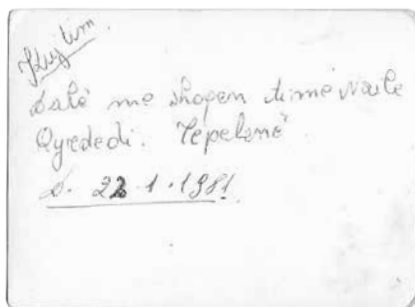 Kujtim
Dalë me shoqen time Naile
Qyrdedi. Tepelenë
D. 22.1.1981